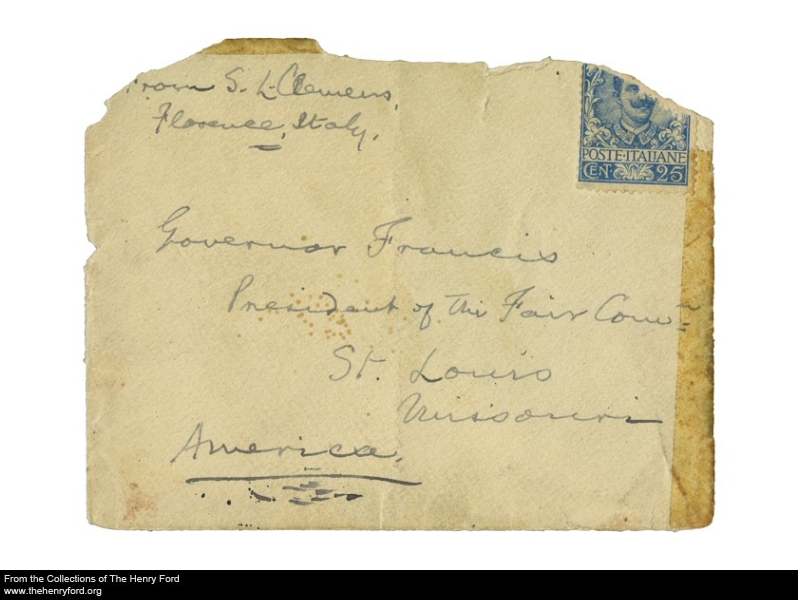 From S. L. Clemens,
Florence, Italy.
POSTE·ITALIANE
CEN· 25
Governor Francis
President of the Fair Com'n
St. Louis
Missouri
America.
From the Collections of The Henry Ford
www.thehenryford.org